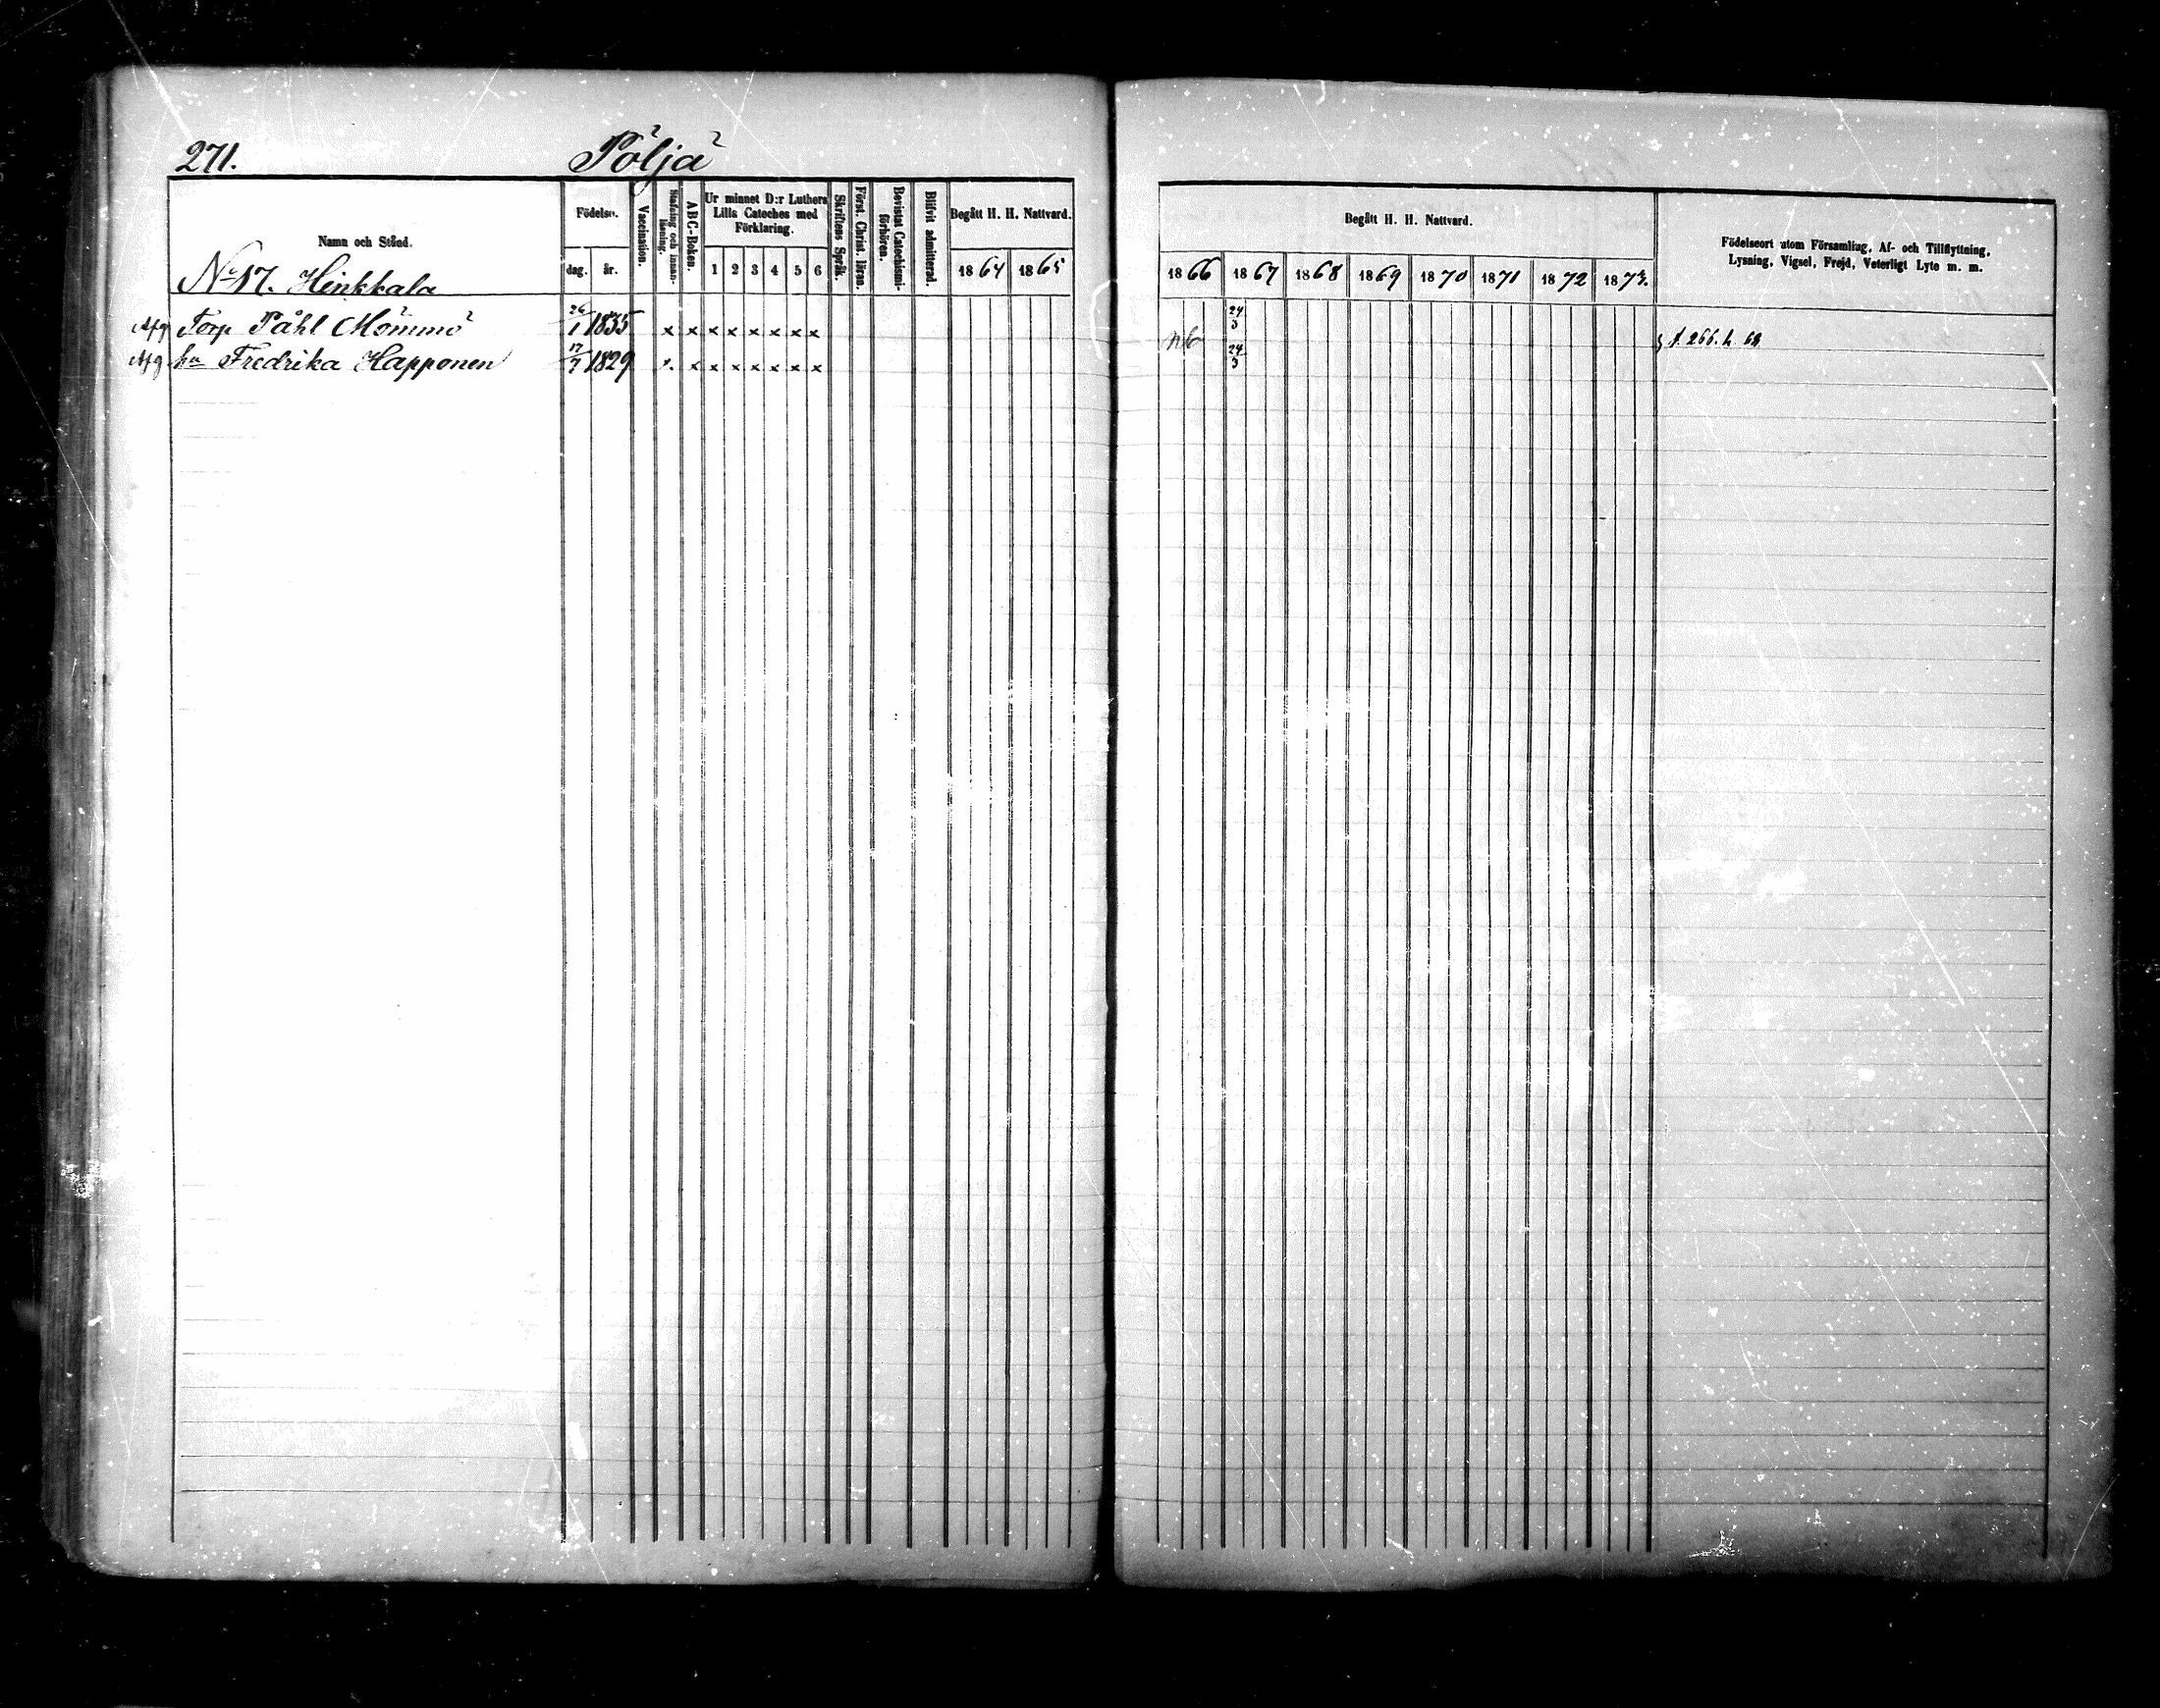 271. Pöljä
Namn och Stånd.
Födelse.
dag. år.
Vaccination.
Stafning och innan-läsning.
ABC-Boken.
Ur minnet D:r Luthers
Lilla Cateches med
Förklaring.
1 2 3 4 5 6
Skriftens Språk.
Först. Christ. läran.
Bevistat Catechismi-förhören.
Blifvit admitterad.
Begått H. H. Nattvard.
1864 1865
Begått H. H. Nattvard.
1866 1867 1868 1869 1870 1871 1872 1873.
Födelseort utom Församling, Af- och Tillflyttning,
Lysning, Vigsel, Frejd, Veterligt Lyte m. m.
No 17. Hinkkala
Afg Torp Påhl Mömmö 26/1 1835 x x x x x x x x 24/3
Afg hu Fredrika Happonen 17/7 1829 x x x x x x x x 24/3
266. h. 68